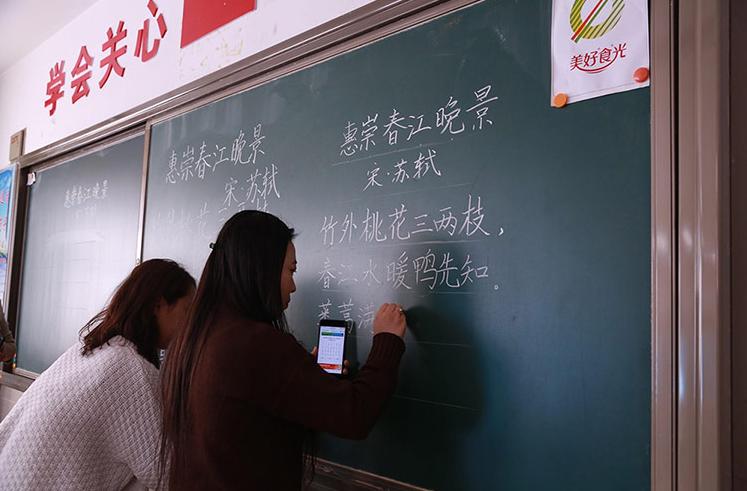 学会关心
美好食光
惠崇春江晚景
惠崇春江晚景
宋·苏轼
竹外桃花三
惠崇春江晚景
宋·苏轼
竹外桃花三两枝，
春江水暖鸭先知。
蒌蒿满